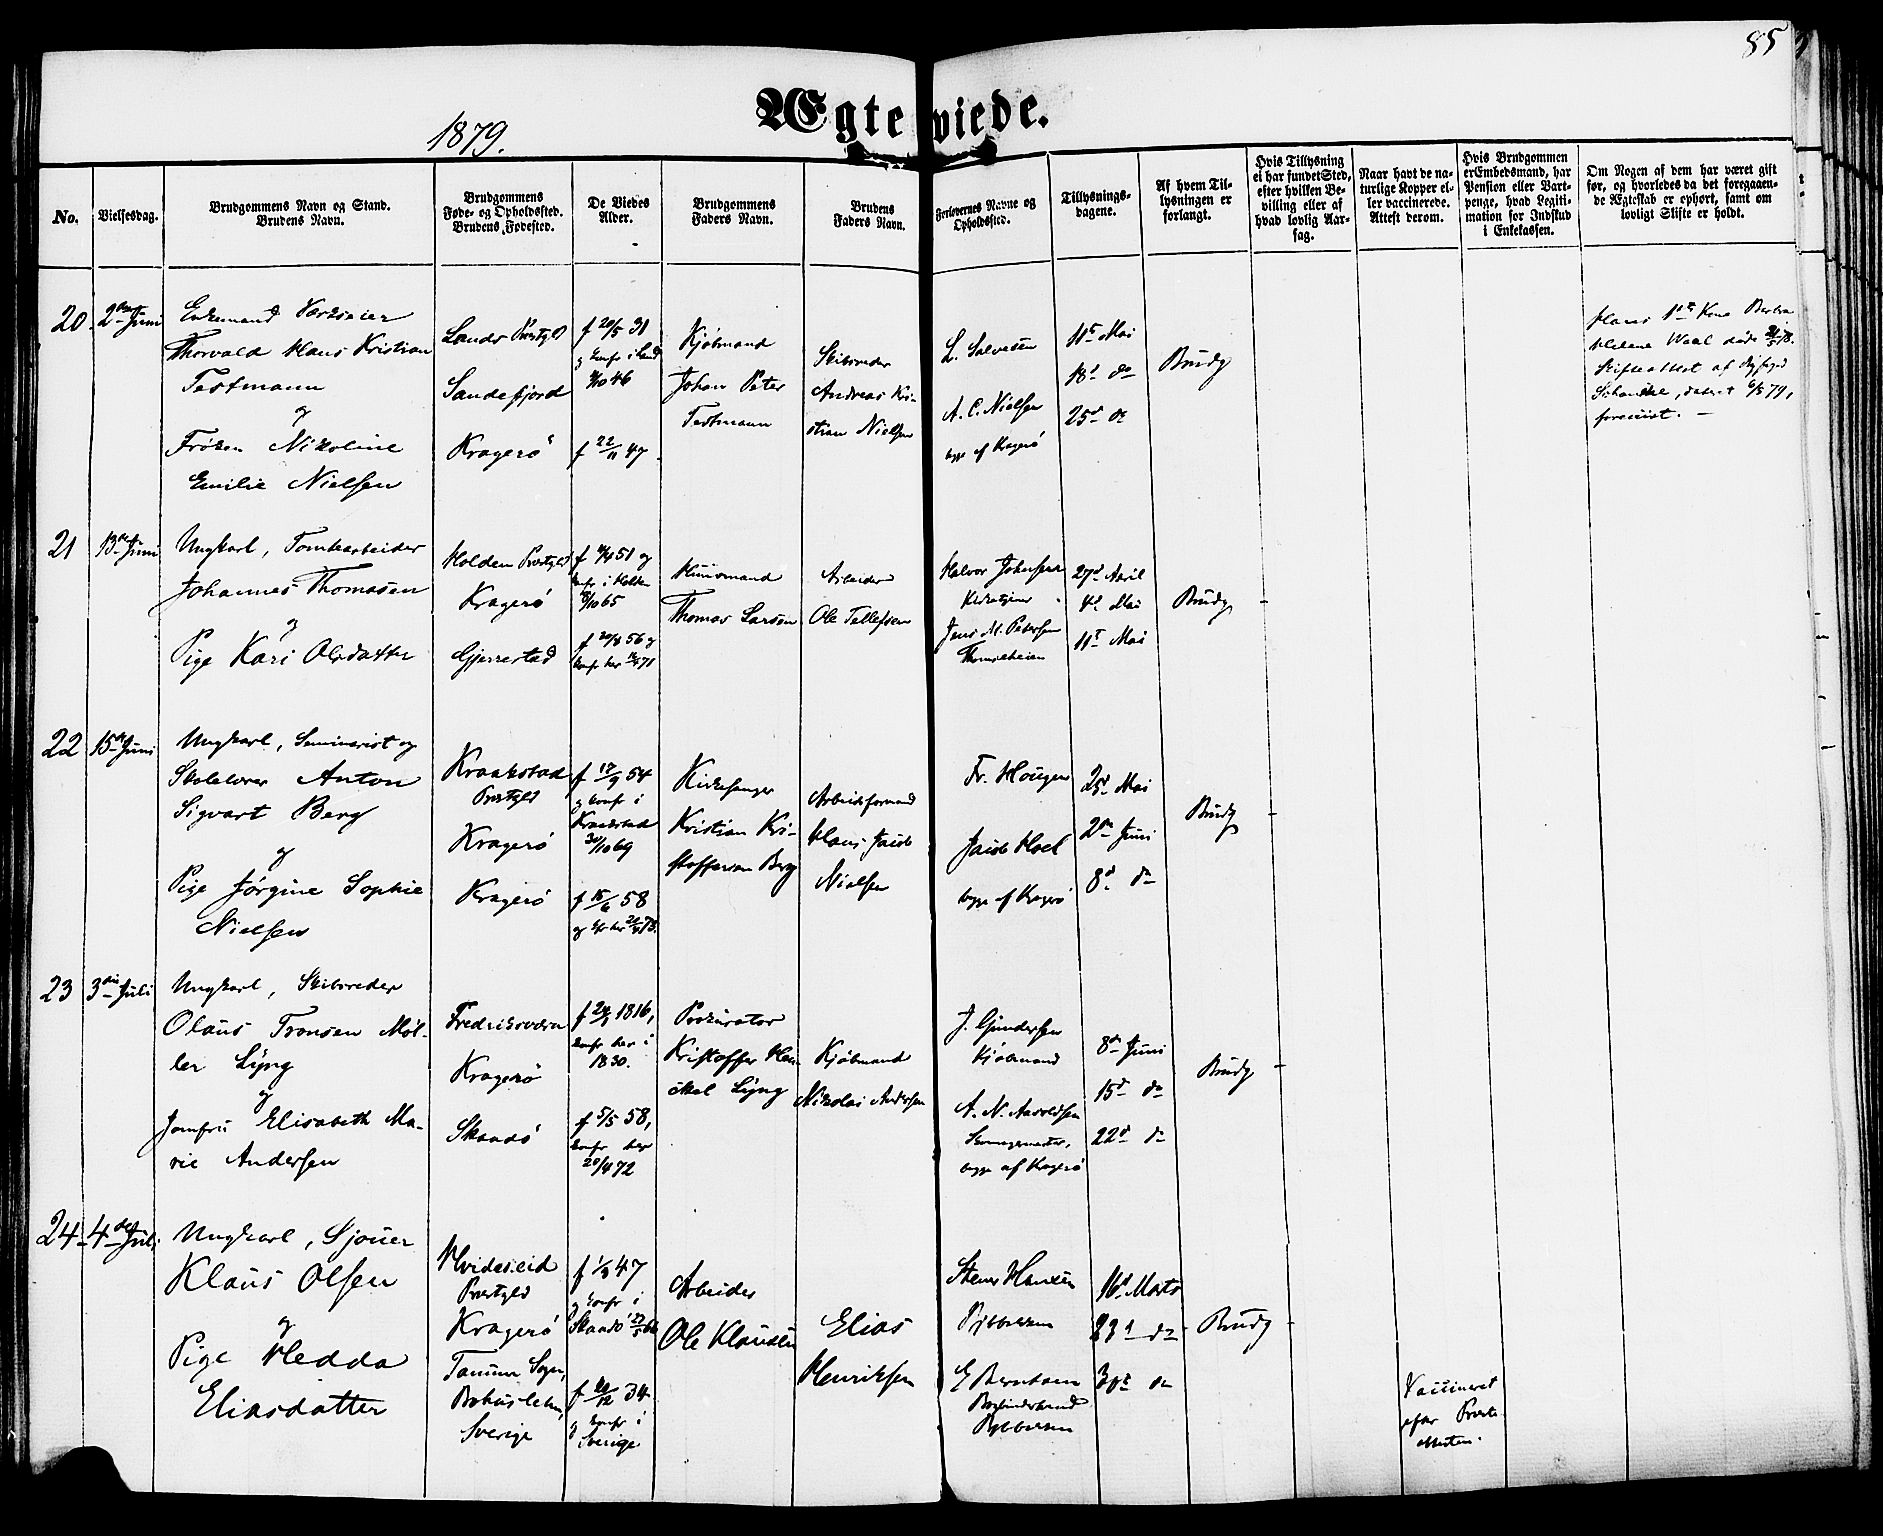 85
Ægteviede.
1879.
No.
Vielsesdag.
Brudgommens Navn og Stand.
Brudens Navn.
Brudgommens
Føde- og Opholdssted.
Brudens Fødested.
De Viedes
Alder.
Brudgommens
Faders Navn.
Brudens
Faders Navn.
Forlovernes Navne og
Opholdssted.
Tillysnings-
dagene.
Af hvem Til-
lysningen er
forlangt.
Hvis Tillysning
ei har fundet Sted,
efter hvilken Be-
villing eller af
hvad lovlig Aar-
sag.
Naar havt de na-
turlige Kopper el-
ler vaccinerede.
Attest derom.
Hvis Brudgommen
er Embedsmand, har
Pension eller Vart-
penge, hvad Legiti-
mation for Indskud
i Enkekassen.
Om Nogen af dem har været gift
før, og hvorledes da det foregaaen-
de Ægteskab er ophørt, samt om
lovligt Skifte er holdt.
20
2den Juni
Enkemand
Thorvald Hans Kristian
Testmann
og
Frøken Nikoline
Emilie Nielsen
Sande Prstgld
Sandefjord
Kragerø
f 20/5 31
f 22/11 47
Kjøbmand
Johan Peter
Testmann
Skibsreder
Andreas Kri-
stian Nielsen
L. Salvesen
A. C. Nielsen
begge af Kragerø
11te Mai
18d do
25d do
Brudg
Hans 1ste Kone
Helene Waal døde
Skifteattest af
dateret 6/5 79,
forevist. —
21
13de Juni
Ungkarl, Tomtearbeider
Johannes Thomasen
og
Pige Kari Olsdatter
Holden Prstgld
Kragerø
Gjerrestad
51 og
konfr i Holden
/10 65
f 20/8 56 og
konfr her 71
Huusmand
Thomas Larsen
Arbeider
Ole Tellefsen
Halvor Johnsen
Kirketjener
Jens M. Petersen
27d April
4d Mai
11te Mai
Brudg
22
15de Juni
Ungkarl, Seminarist og
Skolelærer Anton
Sigvart Berg
og
Pige Jørgine Sophie
Nielsen
Kraakstad
Prstgld
Kragerø
Kragerø
f 17/9 54
og konfr i
Kraakstad
/10 69
f 15/6 58
og kfr her
Kirkesanger
Kristian Kri-
stoffersen Berg
Arbeidsformand
Hans Jacob
Nielsen
Fr. Hougen
Jacob Hoel
begge af Kragerø
25d Mai
2den Juni
8d do
Brudg
23
3die Juli
Ungkarl, Skibsreder
Olaus Tronsen Møl-
ler Lyng
og
Jomfru Elisabeth Ma-
rie Andersen
Fredriksværn
Kragerø
Skaadø
1816,
konfr her i
1830.
f 5/5 58,
konfr her
20/4 72
Prokurator
Kristoffer
Lyng
Kjøbmand
Nikolai Andersen
J. Gundersen
Kjøbmand
A. N. Aaroldsen
begge af Kragerø
8de Juni
15d do
22d do
Brudg
24
4de Juli
Ungkarl, Sjouer
Klaus Olsen
og
Pige Hedda
Eliasdatter
Hvideseid
Prstgld
Kragerø
Tanum Sogn,
Bohuslehn,
Sverige
47
og konfr i
Skaadø
34
og konfr i
Sverige
Arbeider
Ole Klausen
Elias
Henriksen
Stener Hansen
E Berntsen
16d Marts
23d do
30te do
Brudg
Vaccineret
efter Preste-
attesten.